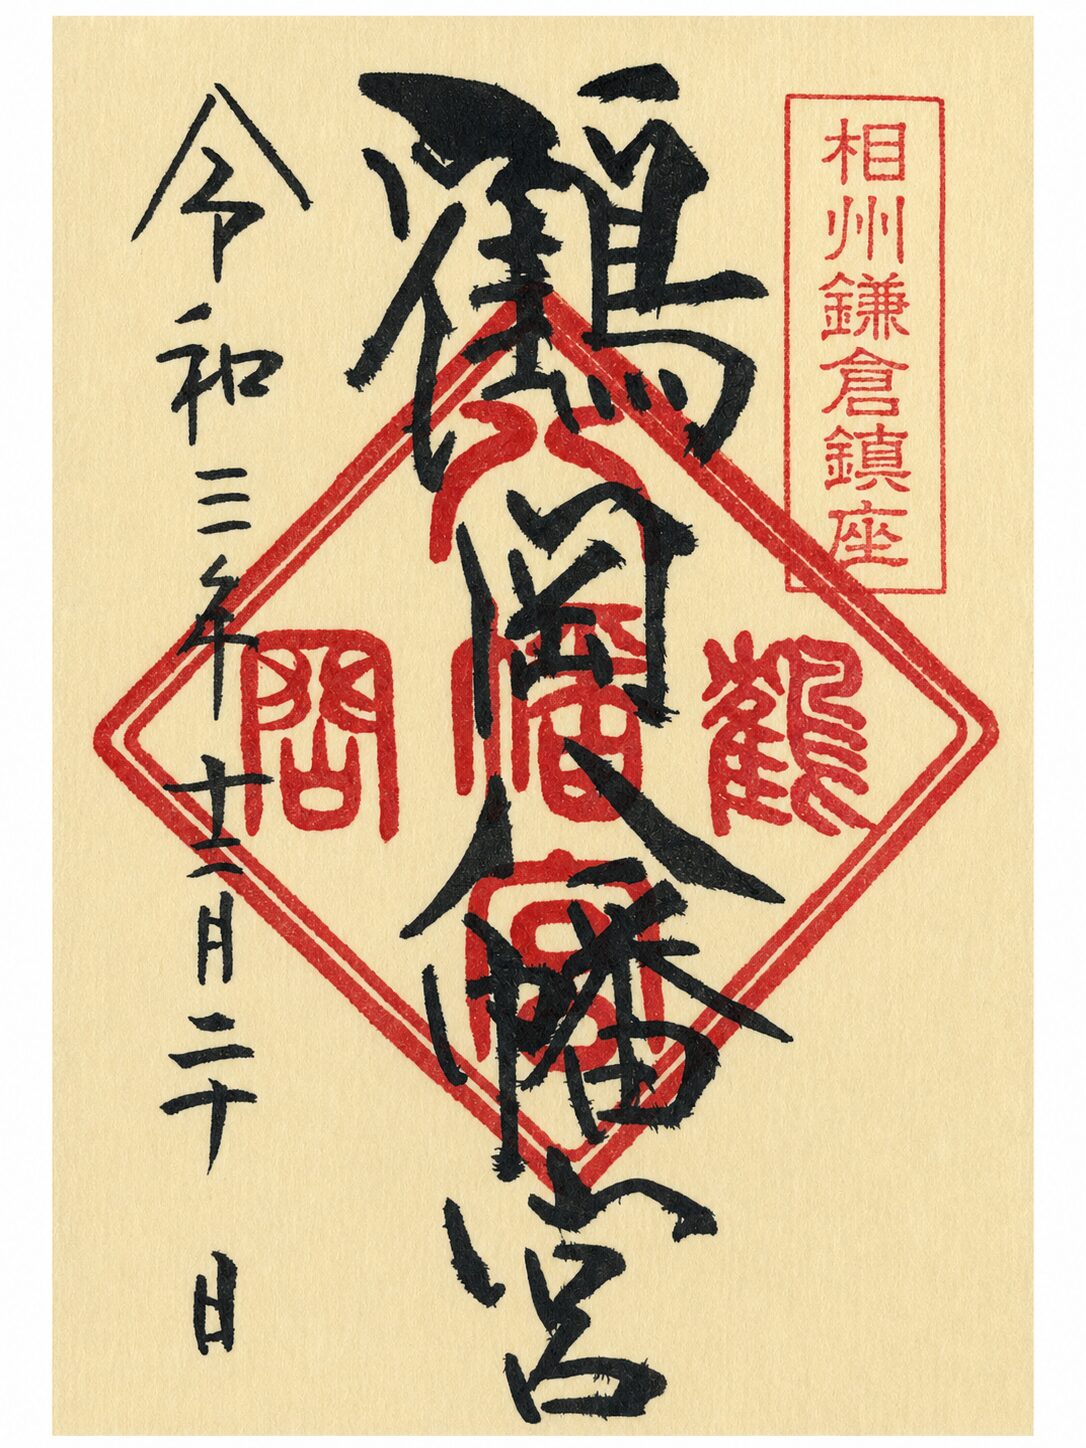 相州鎌倉鎮座
鶴岡八幡宮
令和三年十二月二十日
鶴岡
八幡宮